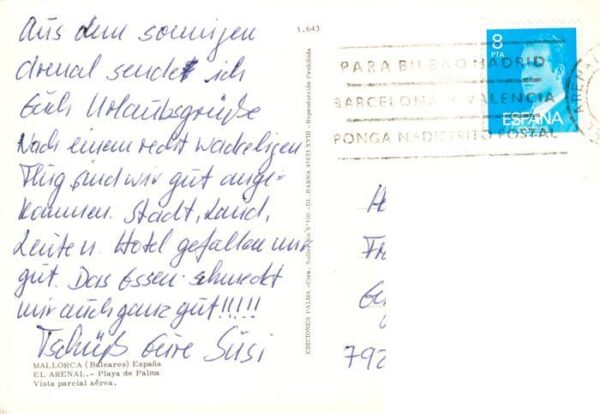 Aus dem sonnigen
Arenal sendet ich
Euch Urlaubsgrüße
Nach einem recht wackeligen
Flug sind wir gut ange-
kommen. Stadt, Land,
Leute n. Hotel gefallen mir
gut. Das Essen schmeckt
mir auch ganz gut!!!!!
Tschüß Eure Susi
MALLORCA (Baleares) España
EL ARENAL.- Playa de Palma
Vista parcial aérea.
1.643
EDICIONES PALMA
BARNA
XVIII
Reproducción Prohibida
8
PTA
ESPAÑA
PARA BILBAO MADRID
BARCELONA Y VALENCIA
PONGA Nº DISTRITO POSTAL
792